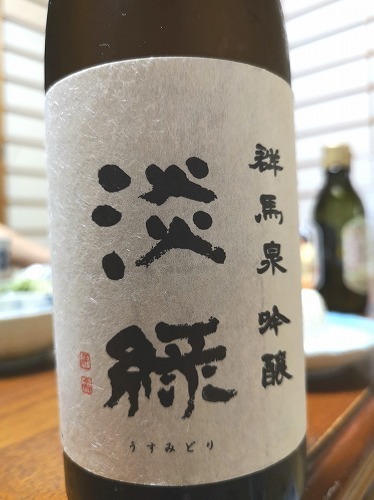 群馬泉 吟醸
淡緑
うすみどり